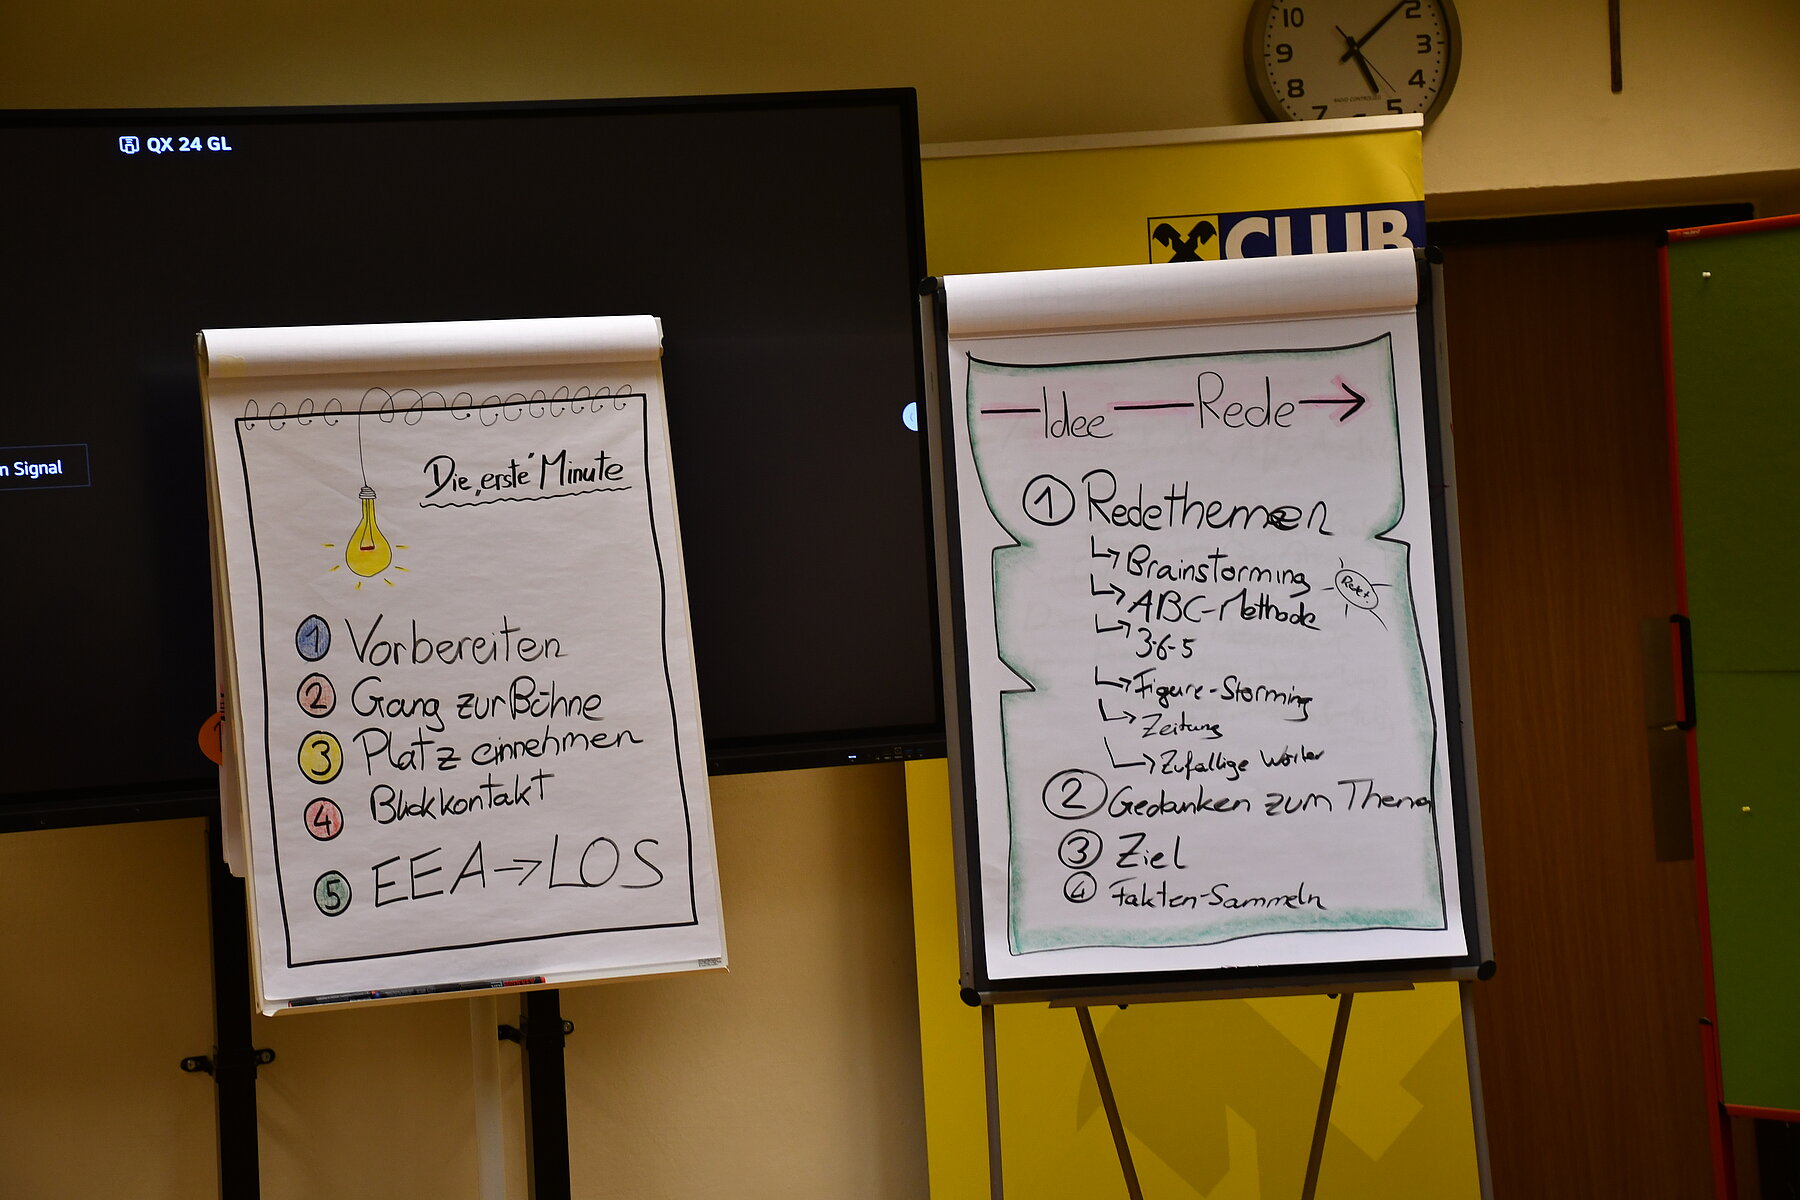 QX 24 GL
n Signal
Die „erste" Minute
1 Vorbereiten
2 Gang zur Bühne
3 Platz einnehmen
4 Blickkontakt
5 EEA → LOS
10
2
9
3
8
4
7
6
5
RADIO CONTROLLED
CLUB
Idee Rede
1 Redethemen
Brainstorming
ABC-Methode
3-6-5
Figure-Storming
Zeitung
Zufällige Wörter
2 Gedanken zum Thema
3 Ziel
4 Fakten-Sammeln